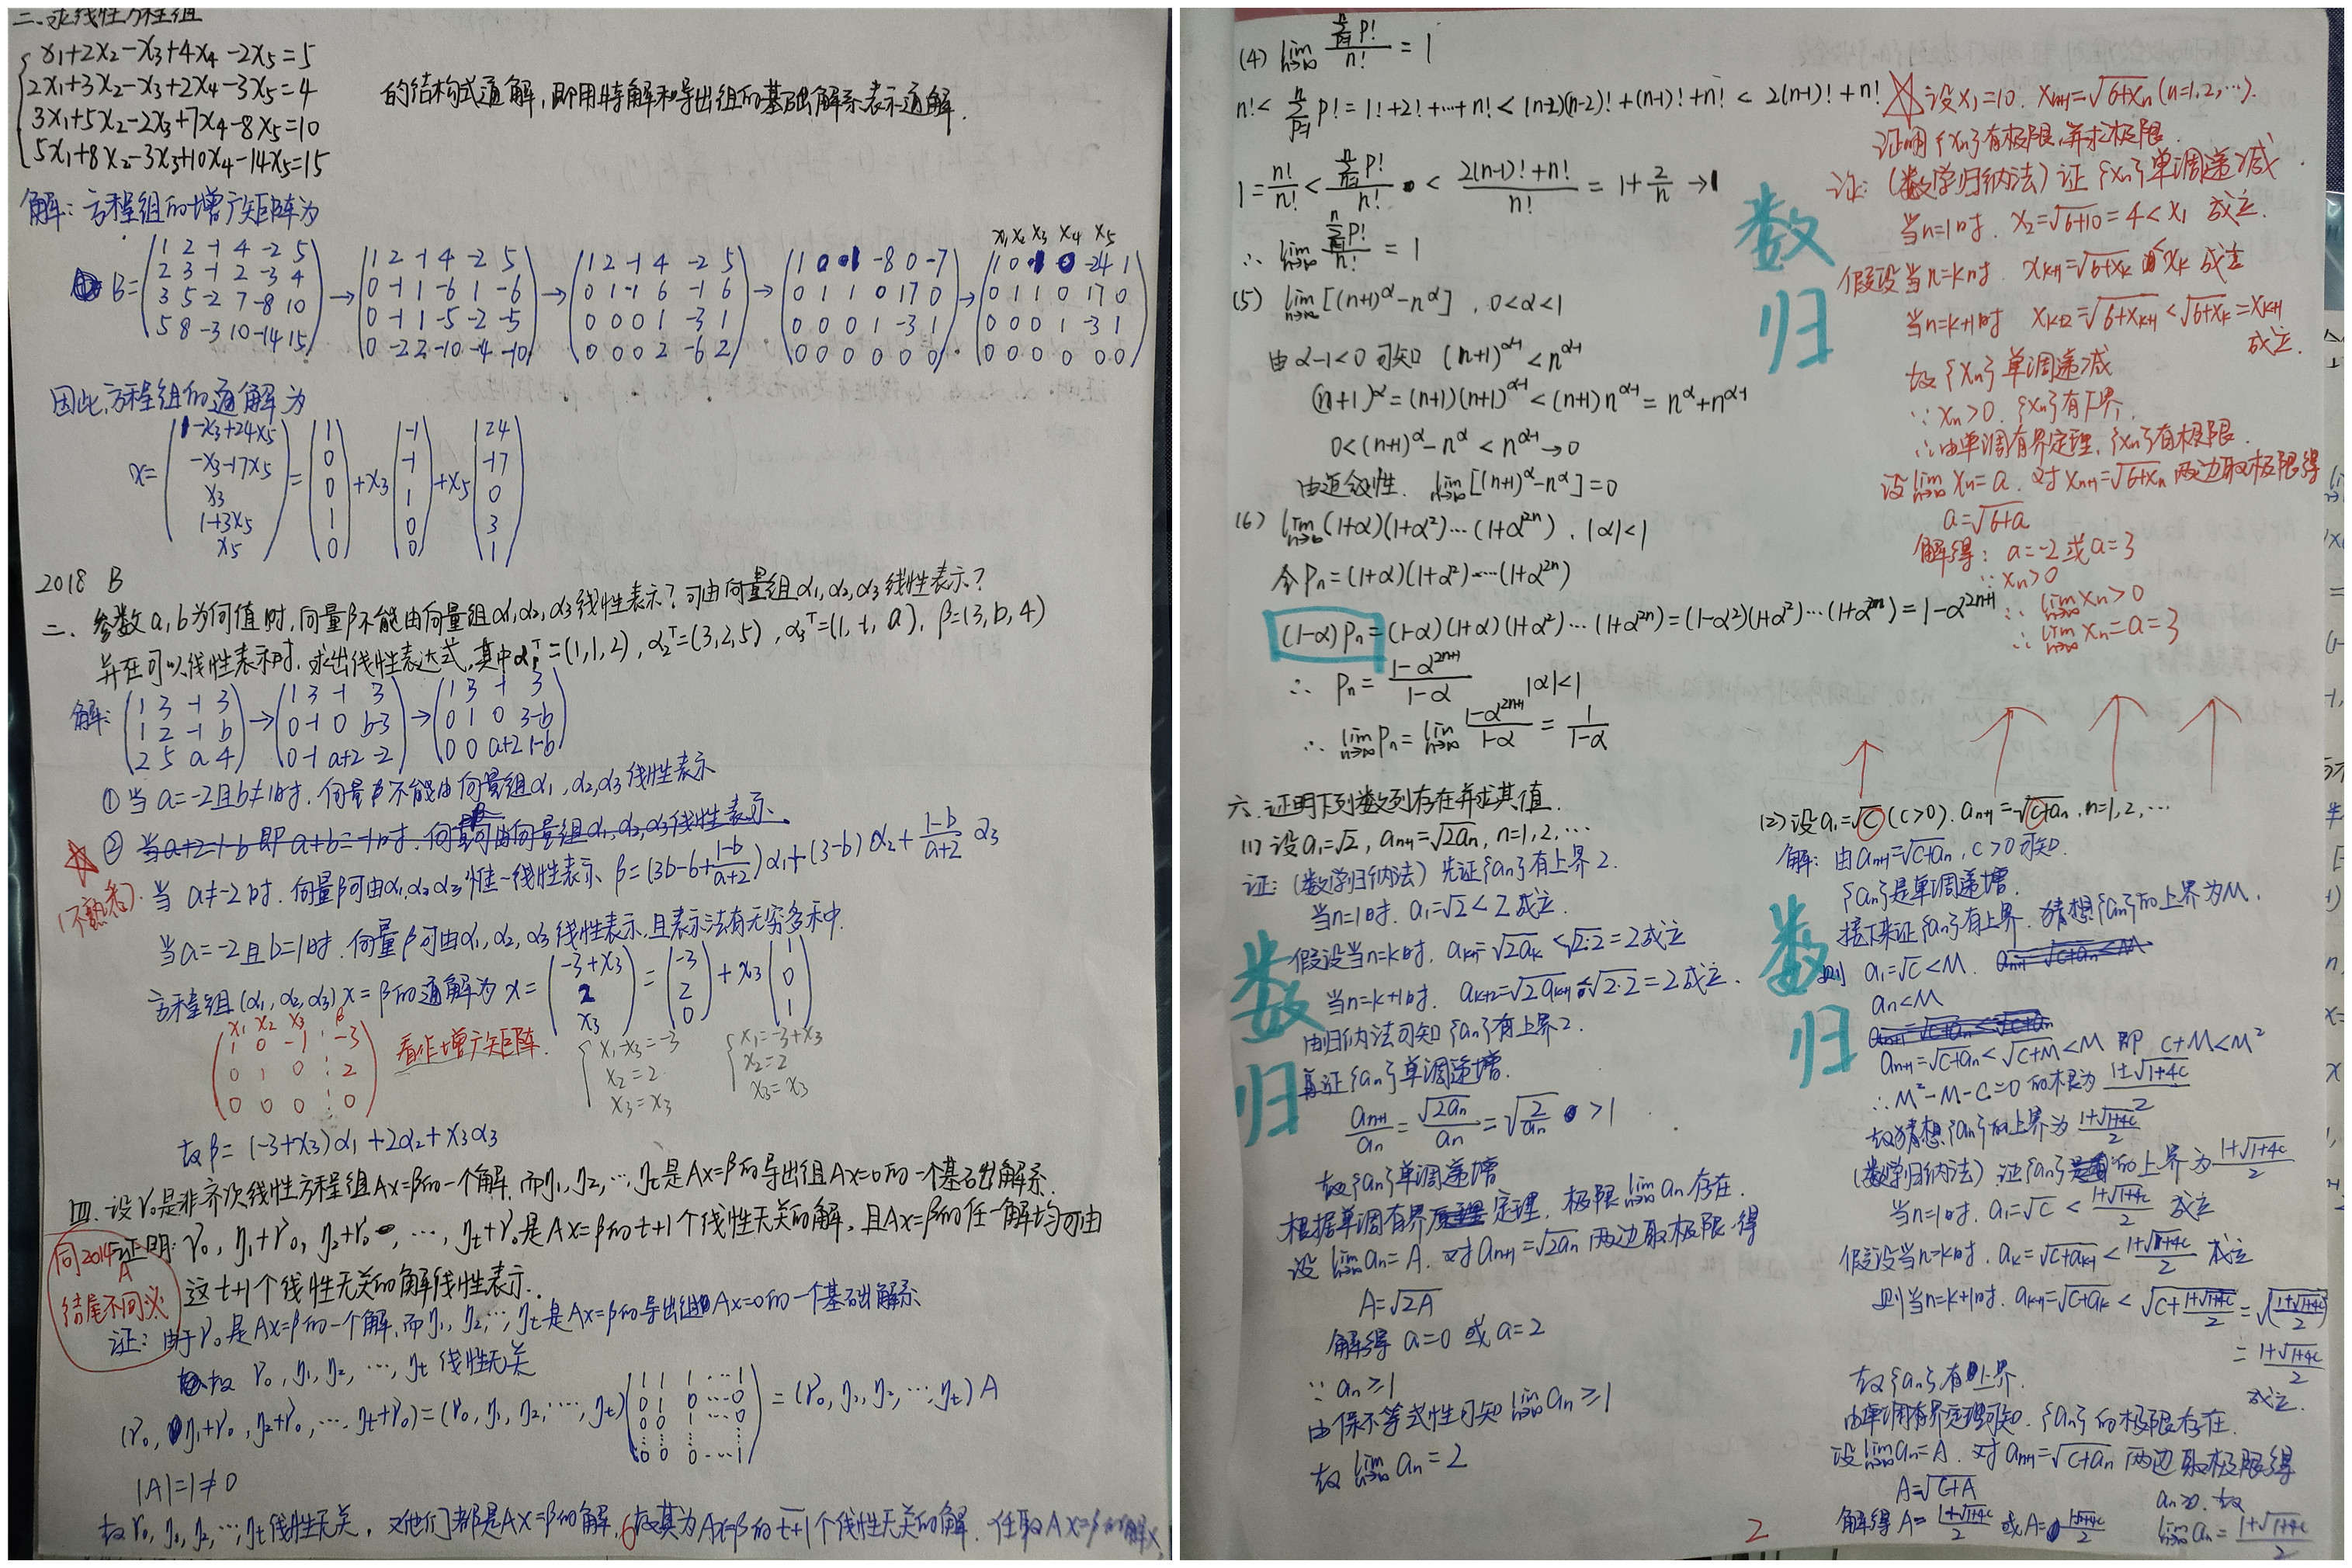 二.求线性方程组
x₁+2x₂-x₃+4x₄-2x₅=5
2x₁+3x₂-x₃+2x₄-3x₅=4
3x₁+5x₂-2x₃+7x₄-8x₅=10
5x₁+8x₂-3x₃+10x₄-14x₅=15
的结构式通解,即用特解和导出组的基础解系表示通解.
解:方程组的增广矩阵为
B=(1 2 -1 4 -2 5; 2 3 -1 2 -3 4; 3 5 -2 7 -8 10; 5 8 -3 10 -14 15)→(1 2 -1 4 -2 5; 0 -1 1 -6 1 -6; 0 -1 1 -5 -2 -5; 0 -2 2 -10 -4 -10)→(1 2 -1 4 -2 5; 0 1 -1 6 -1 6; 0 0 0 1 -3 1; 0 0 0 2 -6 2)→(1 0 1 -8 0 -7; 0 1 1 0 17 0; 0 0 0 1 -3 1; 0 0 0 0 0 0)→(1 0 1 0 -24 1; 0 1 1 0 17 0; 0 0 0 1 -3 1; 0 0 0 0 0 0)
x₁ x₂ x₃ x₄ x₅
因此,方程组的通解为
x=(1-x₃+24x₅; -x₃-17x₅; x₃; 1+3x₅; x₅)=(1; 0; 0; 1; 0)+x₃(-1; -1; 1; 0; 0)+x₅(24; -17; 0; 3; 1)
2018 B
二、参数a,b为何值时,向量β不能由向量组α₁,α₂,α₃线性表示?可由向量组α₁,α₂,α₃线性表示?
并在可以线性表示时,求出线性表达式,其中α₁ᵀ=(1,1,2),α₂ᵀ=(3,2,5),α₃ᵀ=(1,-1,a),β=(3,b,4)
解:(1 3 -1 3; 1 2 -1 b; 2 5 a 4)→(1 3 -1 3; 0 -1 0 b-3; 0 -1 a+2 -2)→(1 3 -1 3; 0 1 0 3-b; 0 0 a+2 1-b)
①当a=-2且b≠1时.向量β不能由向量组α₁,α₂,α₃线性表示
②当a+2=1-b即a+b=-1时.向量β可由向量组α₁,α₂,α₃线性表示.
(不熟悉).当a≠-2时.向量β可由α₁,α₂,α₃惟一线性表示、β=(3b-6+(1-b)/(a+2))α₁+(3-b)α₂+(1-b)/(a+2) α₃
当a=-2且b=1时.向量β可由α₁,α₂,α₃线性表示,且表示法有无穷多种.
方程组(α₁,α₂,α₃)x=β的通解为x=(-3+x₃; 2; x₃)=(-3; 2; 0)+x₃(1; 0; 1)
x₁ x₂ x₃ β
(1 0 -1 -3; 0 1 0 2; 0 0 0 0)
看作增广矩阵.
x₁-x₃=-3
x₂=2
x₃=x₃
x₁=-3+x₃
x₂=2
x₃=x₃
故β=(-3+x₃)α₁+2α₂+x₃α₃
四.设γ₀是非齐次线性方程组Ax=β的一个解.而η₁,η₂,…,ηt是Ax=β的导出组Ax=0的一个基础解系.
证明:γ₀,η₁+γ₀,η₂+γ₀,…,ηt+γ₀是Ax=β的t+1个线性无关的解,且Ax=β的任一解均可由
这t+1个线性无关的解线性表示.
同2014二A
结尾不同
证:由于γ₀是Ax=β的一个解.而η₁,η₂,…,ηt是Ax=β的导出组Ax=0的一个基础解系
故γ₀,η₁,η₂,…,ηt线性无关
(γ₀,η₁+γ₀,η₂+γ₀,…,ηt+γ₀)=(γ₀,η₁,η₂,…,ηt)(1 1 1 … 1; 0 1 0 … 0; 0 0 1 … 0; ⋮; 0 0 0 … 1)=(γ₀,η₁,η₂,…,ηt)A
|A|=1≠0
故γ₀,η₁,η₂,…,ηt线性无关.又他们都是Ax=β的解,故其为Ax=β的t+1个线性无关的解.任取Ax=β的解x
(4) lim(n→∞) (Σ(p=1→n) p!)/n! = 1
n!< Σ(p=1→n) p!=1!+2!+…+n!<(n-2)(n-2)!+(n-1)!+n!<2(n-1)!+n!
1=n!/n!<(Σ(p=1→n) p!)/n!<(2(n-1)!+n!)/n!=1+2/n→1
∴ lim(n→∞) (Σ(p=1→n) p!)/n!=1
(5) lim(n→∞)[(n+1)^α-n^α],0<α<1
由α-1<0可知 (n+1)^(α-1)<n^(α-1)
(n+1)^α=(n+1)(n+1)^(α-1)<(n+1)n^(α-1)=n^α+n^(α-1)
0<(n+1)^α-n^α<n^(α-1)→0
由迫敛性. lim(n→∞)[(n+1)^α-n^α]=0
(6) lim(n→∞)(1+α)(1+α²)…(1+α^(2n)),|α|<1
令Pn=(1+α)(1+α²)…(1+α^(2n))
(1-α)Pn=(1-α)(1+α)(1+α²)…(1+α^(2n))=(1-α²)(1+α²)…(1+α^(2n))=1-α^(2n+1)
∴ Pn=(1-α^(2n+1))/(1-α) |α|<1
∴ lim(n→∞)Pn=lim(n→∞)(1-α^(2n+1))/(1-α)=1/(1-α)
设x₁=10.xₙ₊₁=√(6+xₙ)(n=1,2,…).
证明{xₙ}有极限,并求极限.
证:(数学归纳法)证{xₙ}单调递减.
当n=1时.x₂=√(6+10)=4<x₁ 成立.
假设当n=k时.xₖ₊₁=√(6+xₖ)<xₖ成立
当n=k+1时 xₖ₊₂=√(6+xₖ₊₁)<√(6+xₖ)=xₖ₊₁
成立.
故{xₙ}单调递减
∵xₙ>0.{xₙ}有下界.
∴由单调有界定理,{xₙ}有极限.
设lim(n→∞)xₙ=a.对xₙ₊₁=√(6+xₙ)两边取极限得
a=√(6+a)
解得:a=-2或a=3
∵xₙ>0
∴lim(n→∞)xₙ>0
∴lim(n→∞)xₙ=a=3
数
归
六.证明下列数列存在并求其值.
(1)设a₁=√2,aₙ₊₁=√(2aₙ),n=1,2,…
证:(数学归纳法)先证{aₙ}有上界2.
当n=1时.a₁=√2<2成立.
假设当n=k时.aₖ₊₁=√(2aₖ)<√(2·2)=2成立
当n=k+1时.aₖ₊₂=√(2aₖ₊₁)<√(2·2)=2成立.
由归纳法可知{aₙ}有上界2.
再证{aₙ}单调递增.
aₙ₊₁/aₙ=√(2aₙ)/aₙ=√(2/aₙ)>1
故{aₙ}单调递增
根据单调有界定理.极限lim(n→∞)aₙ存在.
设lim(n→∞)aₙ=A.对aₙ₊₁=√(2aₙ)两边取极限得
A=√(2A)
解得a=0或a=2
∵aₙ≥1
由保不等式性可知lim(n→∞)aₙ≥1
故lim(n→∞)aₙ=2
数
归
(2)设a₁=√c(c>0).aₙ₊₁=√(c+aₙ),n=1,2,…
解:由aₙ₊₁=√(c+aₙ),c>0可知.
{aₙ}是单调递增.
接下来证{aₙ}有上界.猜想{aₙ}的上界为M.
则a₁=√c<M. aₙ₊₁=√(c+aₙ)<M
aₙ<M
aₙ₊₁=√(c+aₙ)<√(c+aₙ)
aₙ₊₁=√(c+aₙ)<√(c+M)<M 即 c+M<M²
∴M²-M-c=0的根为(1±√(1+4c))/2
故猜想{aₙ}的上界为(1+√(1+4c))/2
(数学归纳法)证{aₙ}的上界为(1+√(1+4c))/2
当n=1时.a₁=√c<(1+√(1+4c))/2 成立
假设当n=k时.aₖ=√(c+aₖ₋₁)<(1+√(1+4c))/2 成立
则当n=k+1时.aₖ₊₁=√(c+aₖ)<√(c+(1+√(1+4c))/2)=√((1+√(1+4c))/2)²
=(1+√(1+4c))/2
成立.
故{aₙ}有上界.
由单调有界定理可知.{aₙ}的极限存在.
设lim(n→∞)aₙ=A.对aₙ₊₁=√(c+aₙ)两边取极限得
A=√(c+A)
解得A=(1+√(1+4c))/2或A=(1-√(1+4c))/2
aₙ>0.故
lim(n→∞)aₙ=(1+√(1+4c))/2
数
归
2